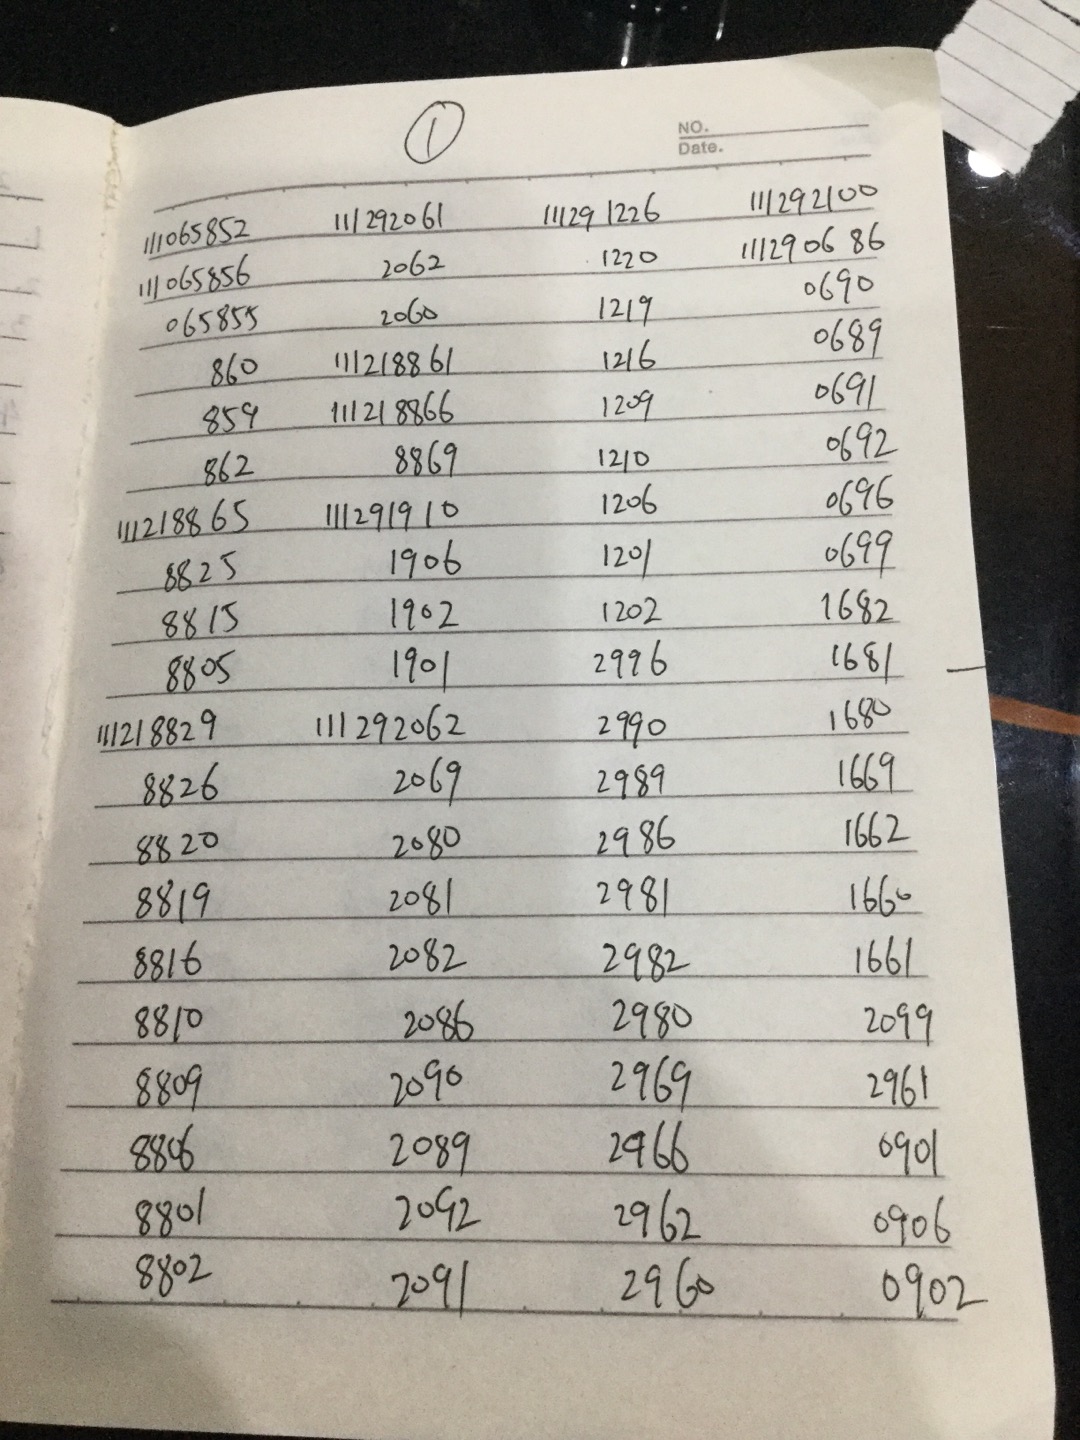 ①
NO.
Date.
111065852 111292061 111291226 111292100
111065856 2062 1220 111290686
065855 2060 1219 0690
860 111218861 1216 0689
859 111218866 1209 0691
862 8869 1210 0692
111218865 111291910 1206 0696
8825 1906 1201 0699
8815 1902 1202 1682
8805 1901 2996 1681
111218829 111292062 2990 1680
8826 2069 2989 1669
8820 2080 2986 1662
8819 2081 2981 1660
8816 2082 2982 1661
8810 2086 2980 2099
8809 2090 2969 2961
8806 2089 2966 0901
8801 2092 2962 0906
8802 2091 2960 0902